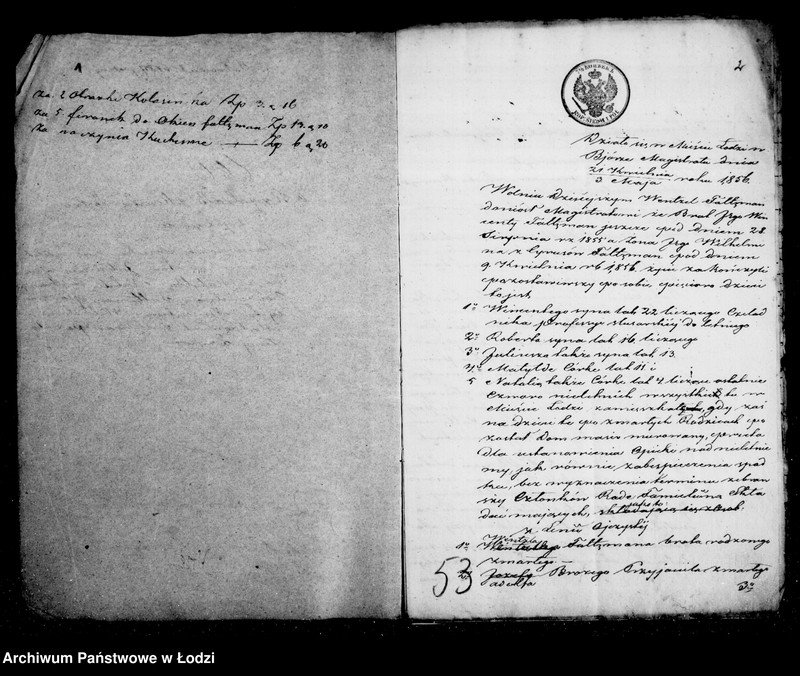 za 2 Obrazki Kolosen ka Zp 3. g 16
za 5 firanek do Okien faltzman Zp 13. g 10
za naczynia Kuchenne — Zp 6 g 20
2
Działo się w Mieście Łodzi w
Bjórze Magistratu dnia
21 Kwietnia
3 Maja roku 1856.
W dniu dzisiejszym Wentzel Faltzman
doniósł Magistratowi że Brat Jego Win
centy Faltzman jeszcze pod dniem 28
Sierpnia r. 1855 a Żona Jego Wilhelmi
na z Cyrusów Faltzman pod dniem
9 Kwietnia r. b. 1856. życie zakończyli
pozostawiwszy po sobie pięcioro dzieci
to jest,
1o Wincentego syna lat 22 liczącego Czelad
nika professyi stolarskiej do letniego
2o Roberta syna lat 16 liczącego
3o Juliusza także syna lat 13.
4o Matyldę Córkę lat 11 i
5 Natalią także Córkę lat 4 liczącą ostatnie
Czworo nieletnich wszystkich tu w
Mieście Łodzi zamieszkałych, gdy zaś
na dzieci te po zmarłych Rodzicach po
został dom massiv murowany, przeto
dla ustanowienia Opieki nad nieletnie
mi, jak równie zabezpieczenia spad
ku, bez wyznaczenia terminu zebra
wszy Członków Rady Familijnej Skła
dać mających,
z Linii Ojczystej
1o Wentzla Faltzmana brata rodzonego
zmarłego —
2o Józefa Brozego Przyjaciela zmarłego
Adolfa
3o
53
Archiwum Państwowe w Łodzi